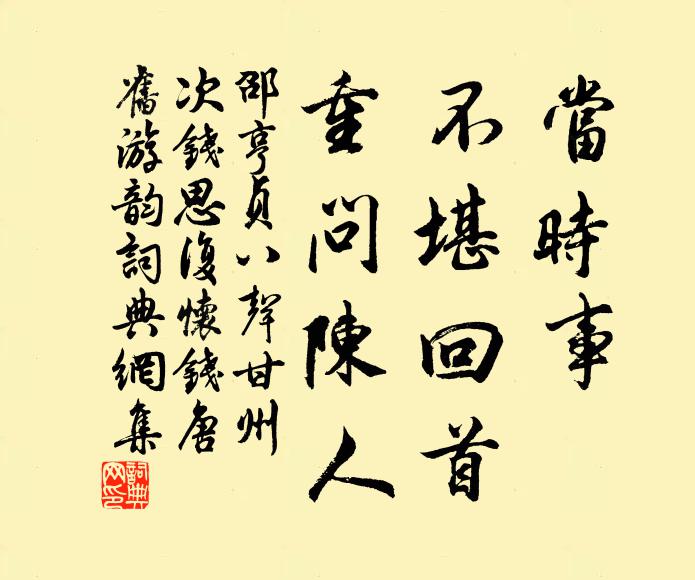 當時事
不堪回首
重問陳人
邵亨貞八聲甘州
次錢思復懷錢唐
舊游韵詞典網集
詞典
网印